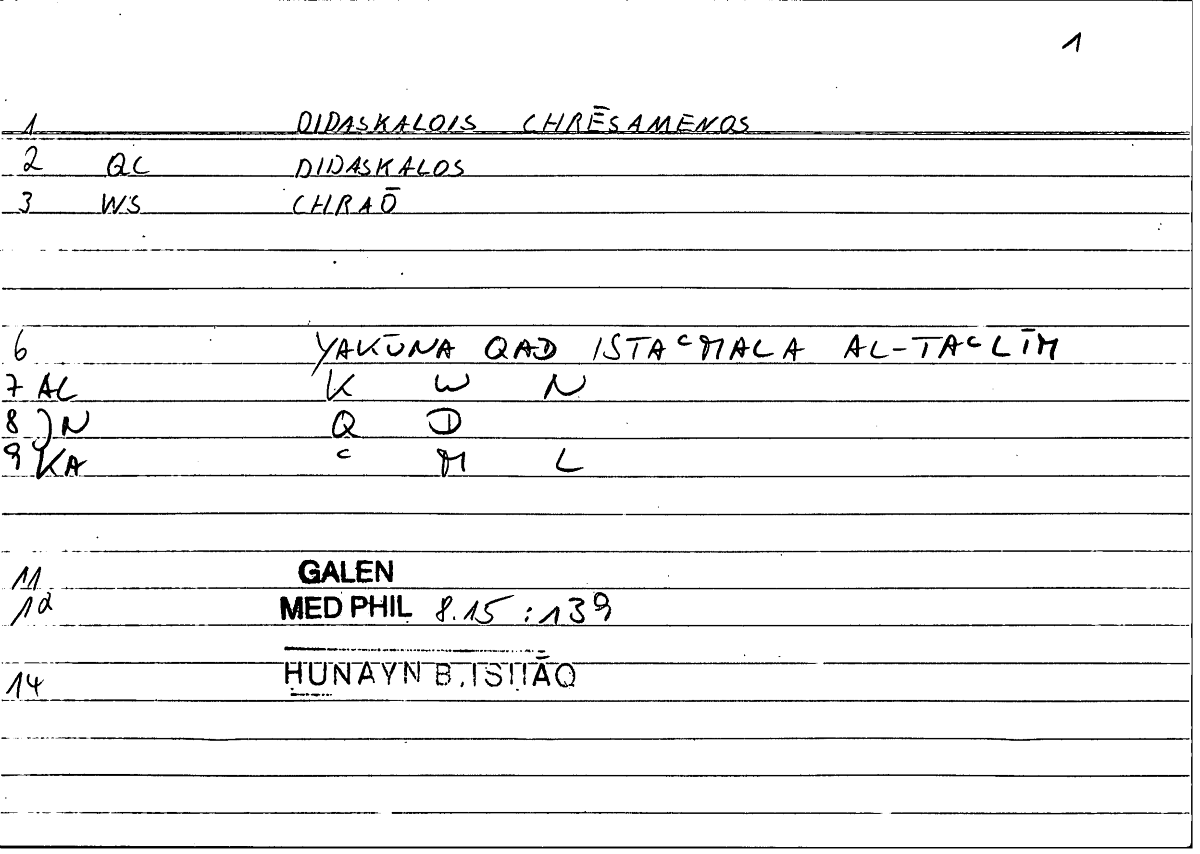 1
1 DIDASKALOIS CHRĒSAMENOS
2 QC DIDASKALOS
3 WS CHRAŌ
6 YAKŪNA QAD ISTAᶜMALA AL-TAᶜLĪM
7 AL K W N
8 JN Q D
9 KA ᶜ M L
11 GALEN
12 MED PHIL 8.15 :139
14 HUNAYN B. ISḤĀQ